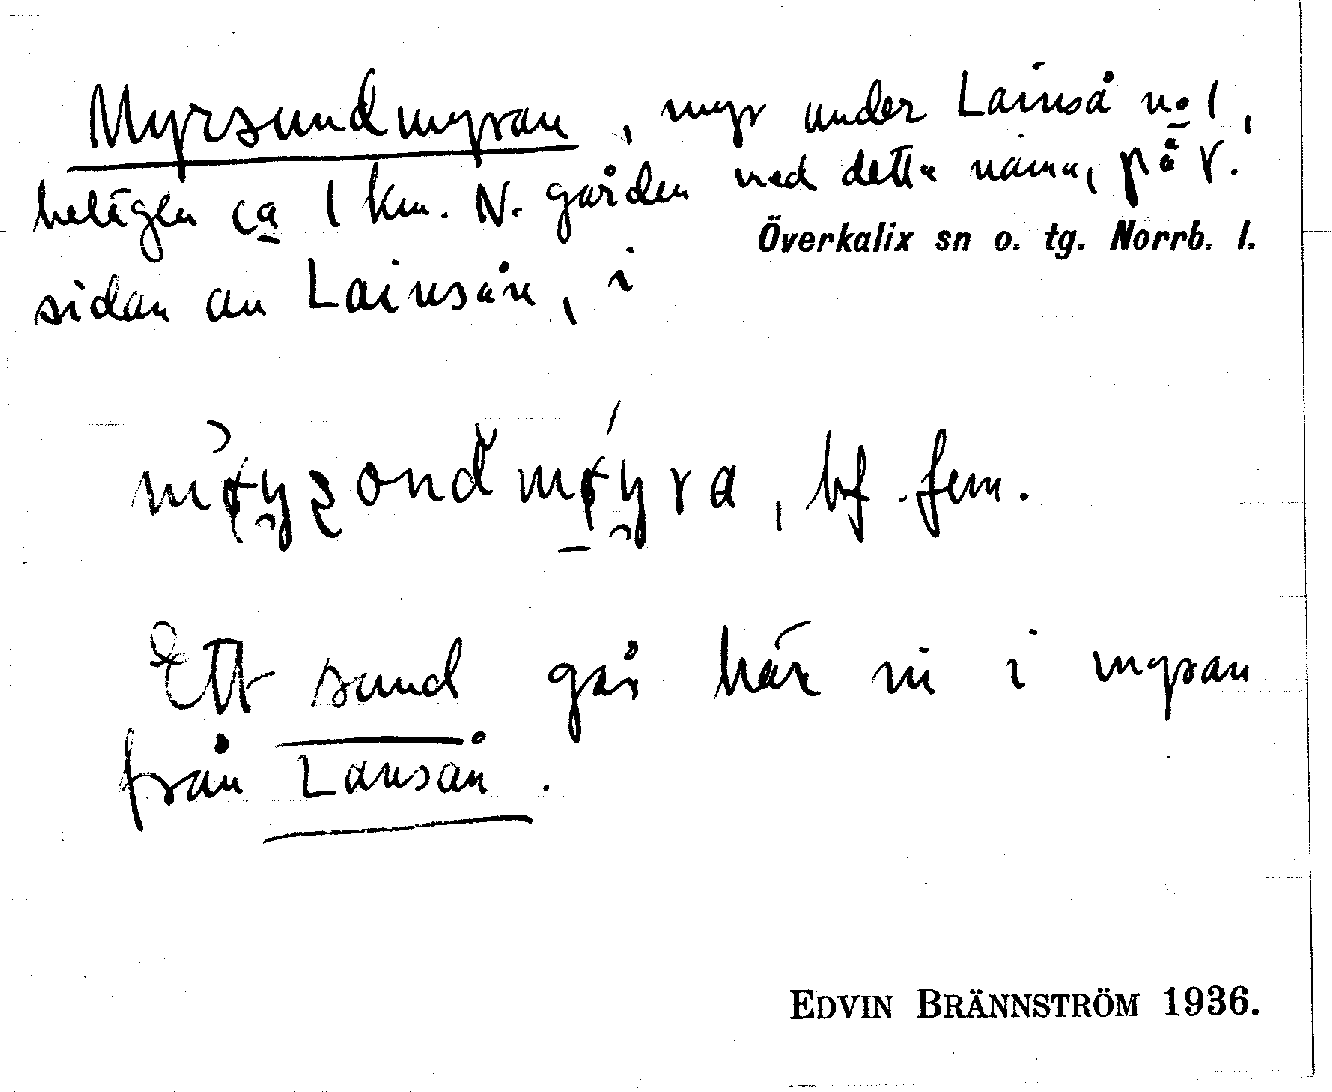 Myrsundmyran, myr under Lainså no 1,
belägen ca 1 km. N. gården med detta namn, på V.
Överkalix sn o. tg. Norrb. l.
sidan av Lainsån, i
bf. fem.
Ett sund går här in i myran
från Lansån.
EDVIN BRÄNNSTRÖM 1936.